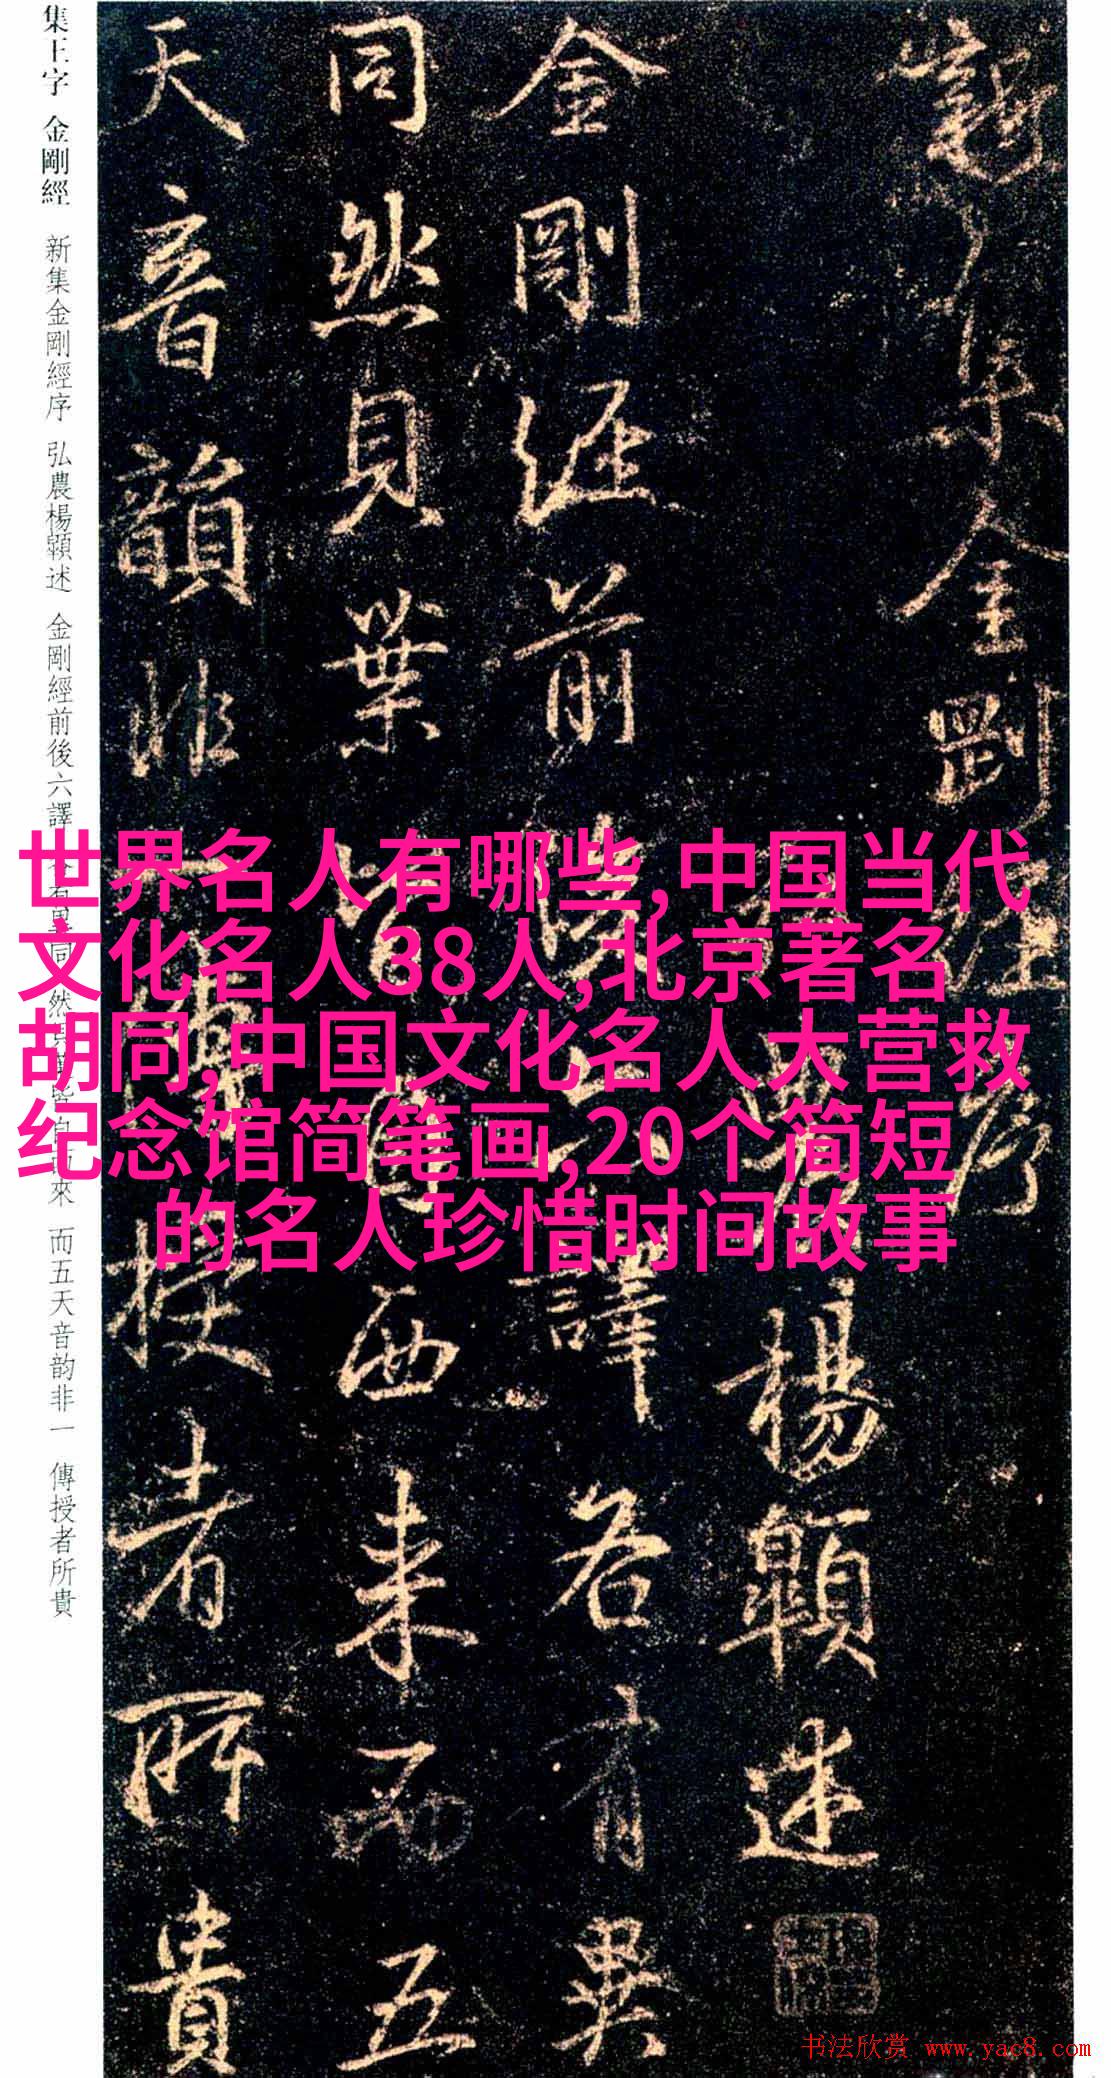 新集金剛經序
楊顥述
金剛經前後六譯各有異
同然貝葉皆自西来而五
天音韻非一傳授者所貴
集王字 金剛經 新集金剛經序 弘農楊顥述 金剛經前後六譯 有異同 然貝葉皆自西來 而五天音韵非一 傳授者所貴
世界名人有哪些,中国当代
文化名人38人,北京著名
胡同,中国文化名人大营救
纪念馆简笔画,20个简短
的名人珍惜时间故事
书法欣赏 www.yac8.com